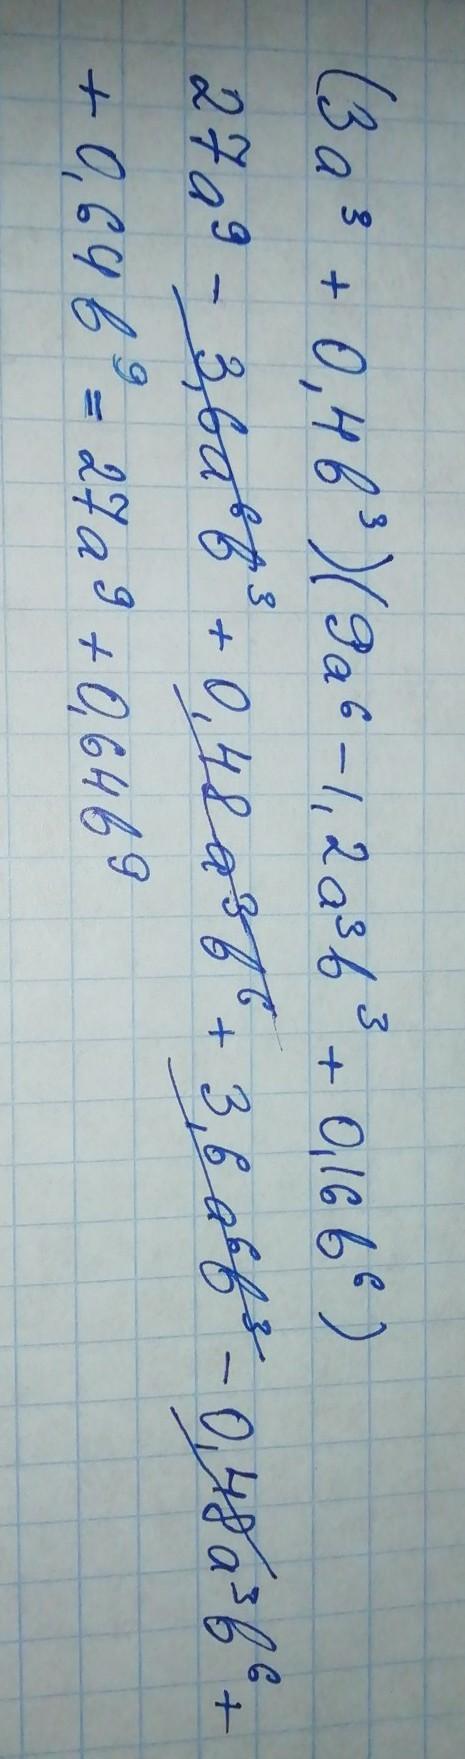 (3a³ + 0,4b³)(9a⁶ - 1,2a³b³ + 0,16b⁶)
27a⁹ - 3,6a⁶b³ + 0,48a³b⁶ + 3,6a⁶b³ - 0,48a³b⁶ +
+ 0,64b⁹ = 27a⁹ + 0,64b⁹